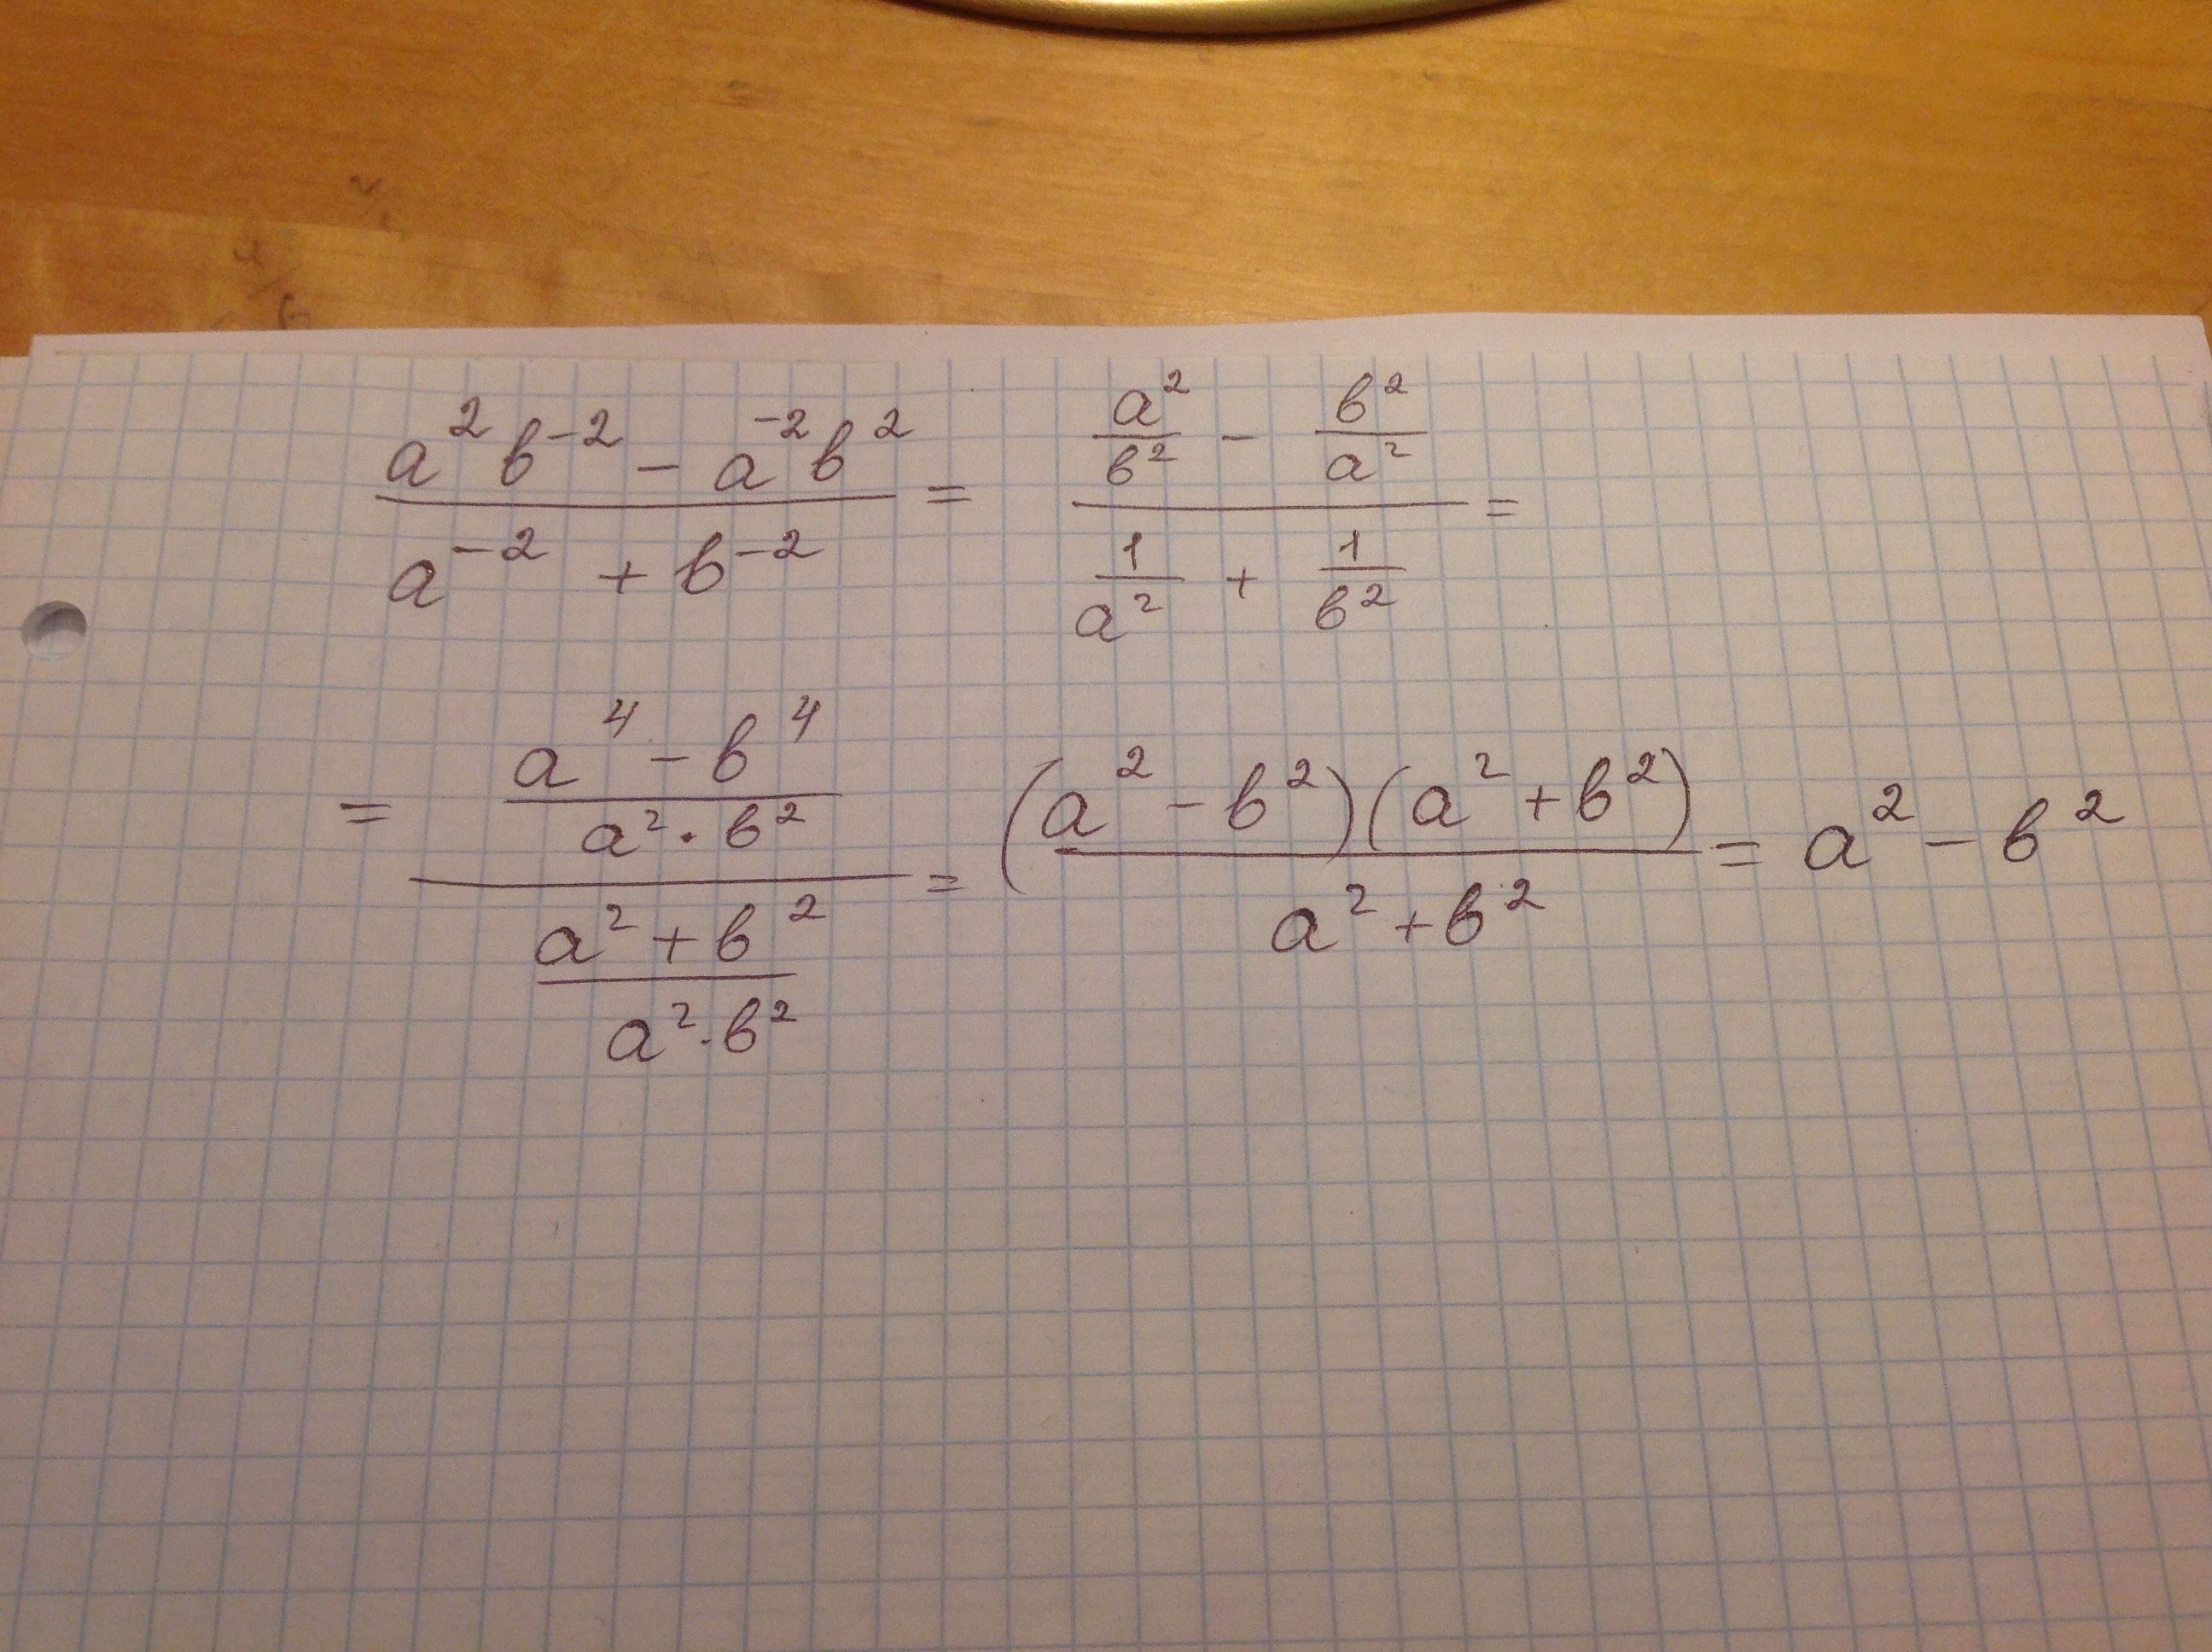 (a²b⁻² − a⁻²b²)/(a⁻² + b⁻²) = (a²/b² − b²/a²)/(1/a² + 1/b²) =
= ((a⁴ − b⁴)/(a²·b²))/((a² + b²)/(a²·b²)) = (a² − b²)(a² + b²)/(a² + b²) = a² − b²